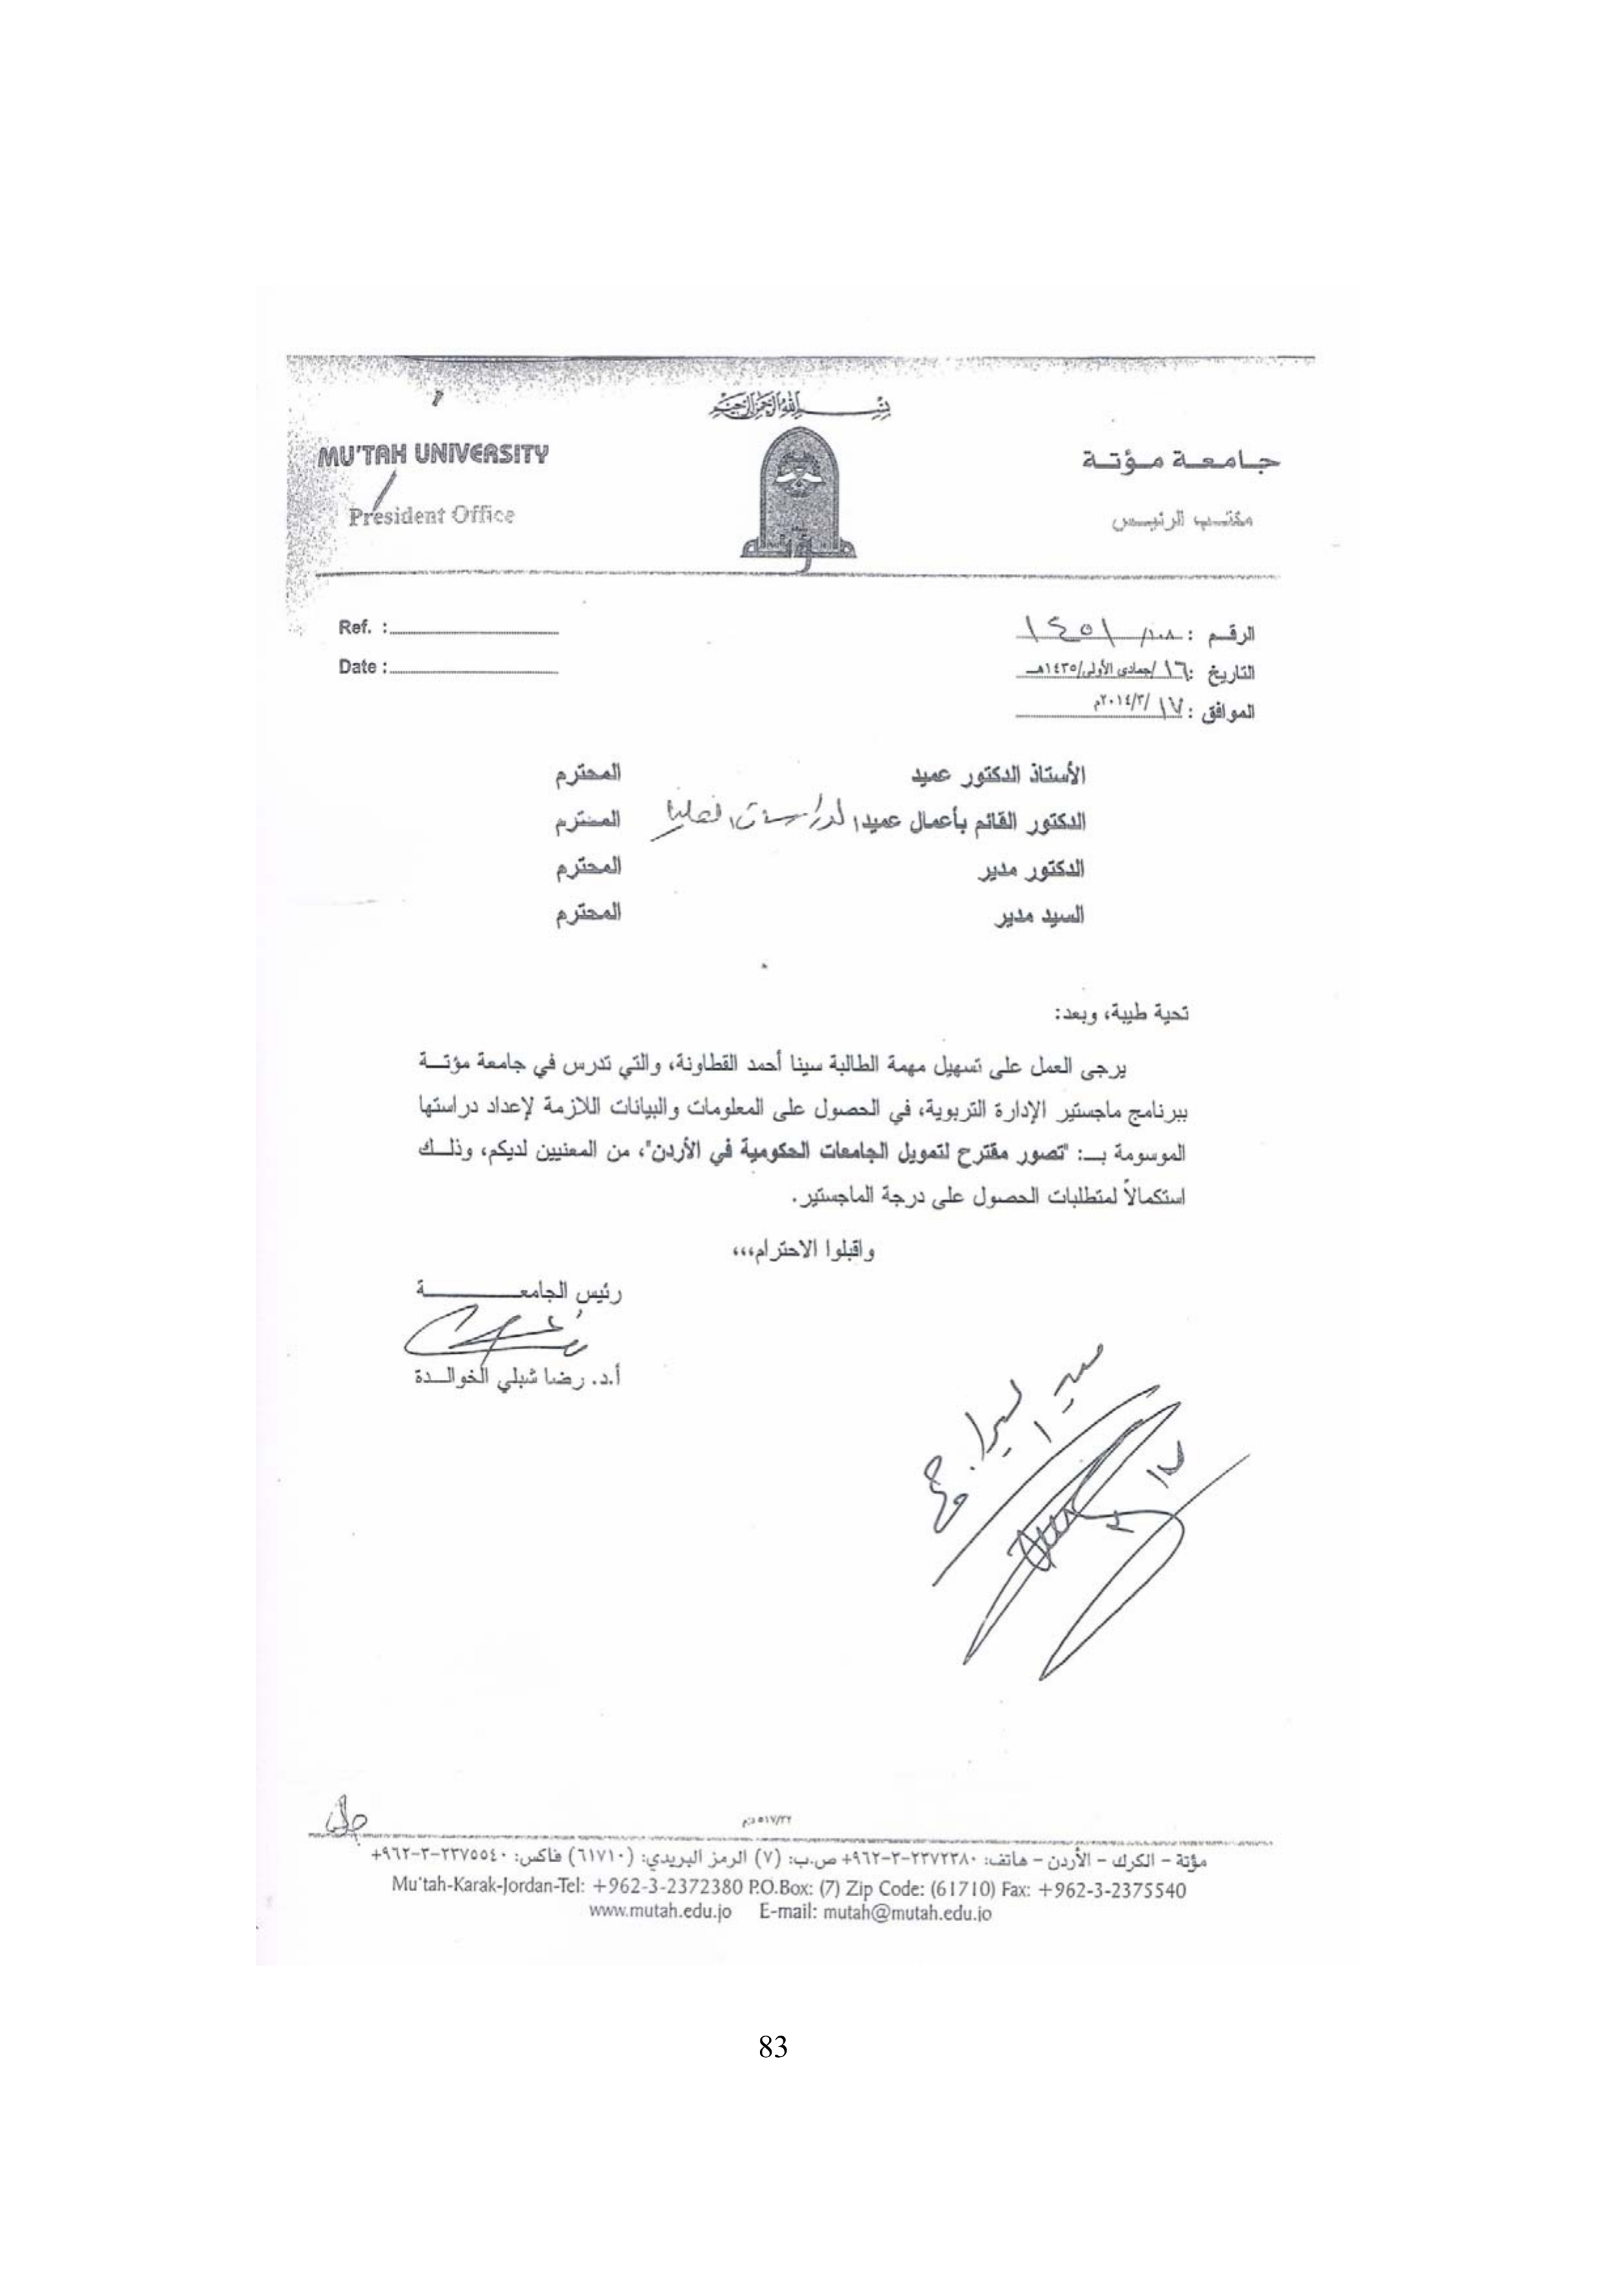 بسم الله الرحمن الرحيم
MU'TAH UNIVERSITY
جامعة مؤتة
President Office
مكتب الرئيس
Ref. :
الرقم : ١٠٨/ ١٤٥١
Date :
التاريخ : ١٦/جمادى الأولى/١٤٣٥هـ
الموافق : ١٧/٣/٢٠١٤م
الأستاذ الدكتور عميد المحترم
الدكتور القائم بأعمال عميد الدراسات العليا المحترم
الدكتور مدير المحترم
السيد مدير المحترم
تحية طيبة، وبعد:
يرجى العمل على تسهيل مهمة الطالبة سينا أحمد القطاونة، والتي تدرس في جامعة مؤتة
ببرنامج ماجستير الإدارة التربوية، في الحصول على المعلومات والبيانات اللازمة لإعداد دراستها
الموسومة بـ: "تصور مقترح لتمويل الجامعات الحكومية في الأردن"، من المعنيين لديكم، وذلك
استكمالاً لمتطلبات الحصول على درجة الماجستير.
واقبلوا الاحترام،،،
رئيس الجامعة
أ.د. رضا شبلي الخوالدة
مؤتة – الكرك – الأردن – هاتف: ٢٣٧٢٣٨٠-٣-٩٦٢+ ص.ب: (٧) الرمز البريدي: (٦١٧١٠) فاكس: ٢٣٧٥٥٤٠-٣-٩٦٢+
Mu'tah-Karak-Jordan-Tel: +962-3-2372380 P.O.Box: (7) Zip Code: (61710) Fax: +962-3-2375540
www.mutah.edu.jo E-mail: mutah@mutah.edu.jo
83